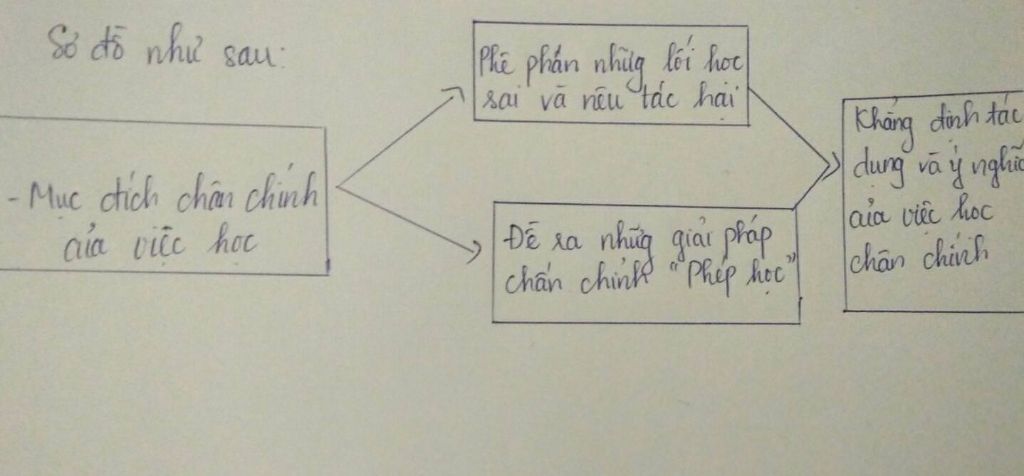 Sơ đồ như sau:
- Mục đích chân chính
của việc học
Phê phán những lối học
sai và nêu tác hại
Đề ra những giải pháp
chấn chỉnh "Phép học"
Khẳng định tác
dụng và ý nghĩa
của việc học
chân chính